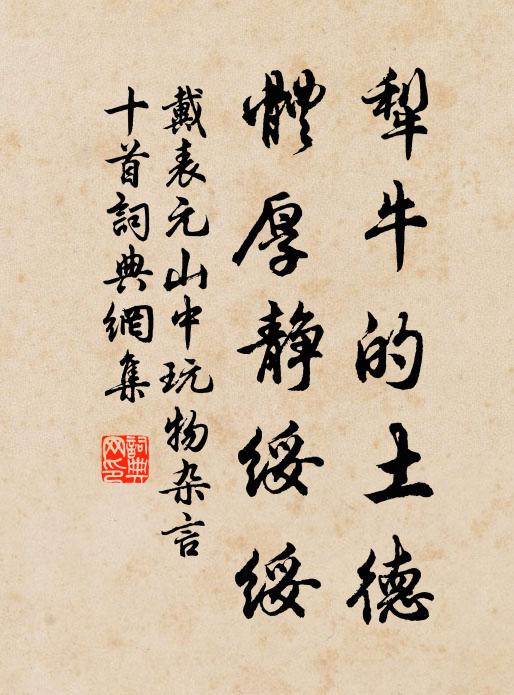 犁牛的土德
體厚静綏綏
戴表元山中玩物杂言
十首詞典網集
詞典
网印